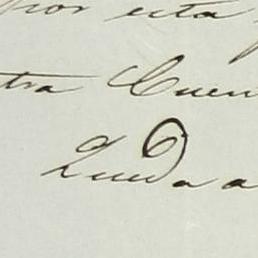 por esta
tra Cuen
Queda a